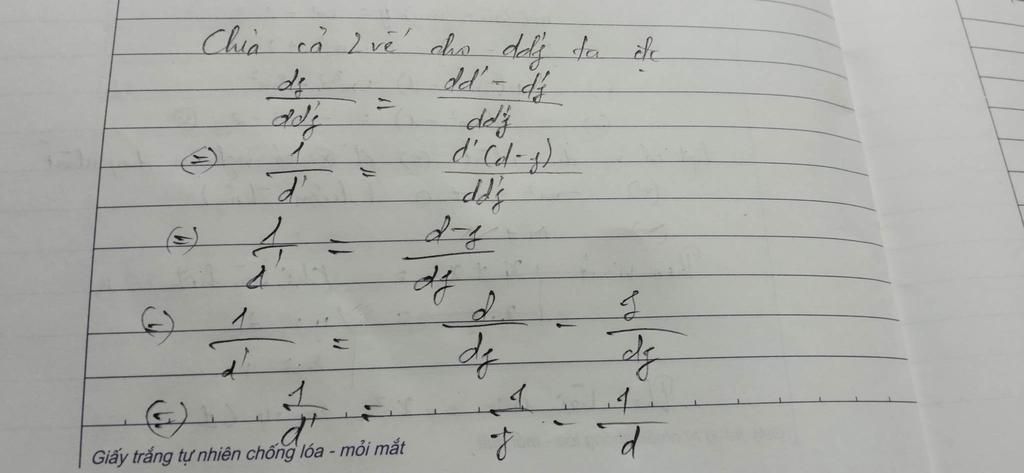 Chia cả 2 vế cho dd'f ta đc
df/dd'f = (dd' - d'f)/dd'f
(=) 1/d' = d'(d-f)/dd'f
(=) 1/d' = (d-f)/df
(=) 1/d' = d/df - f/df
(=) 1/d' = 1/f - 1/d
Giấy trắng tự nhiên chống lóa - mỏi mắt